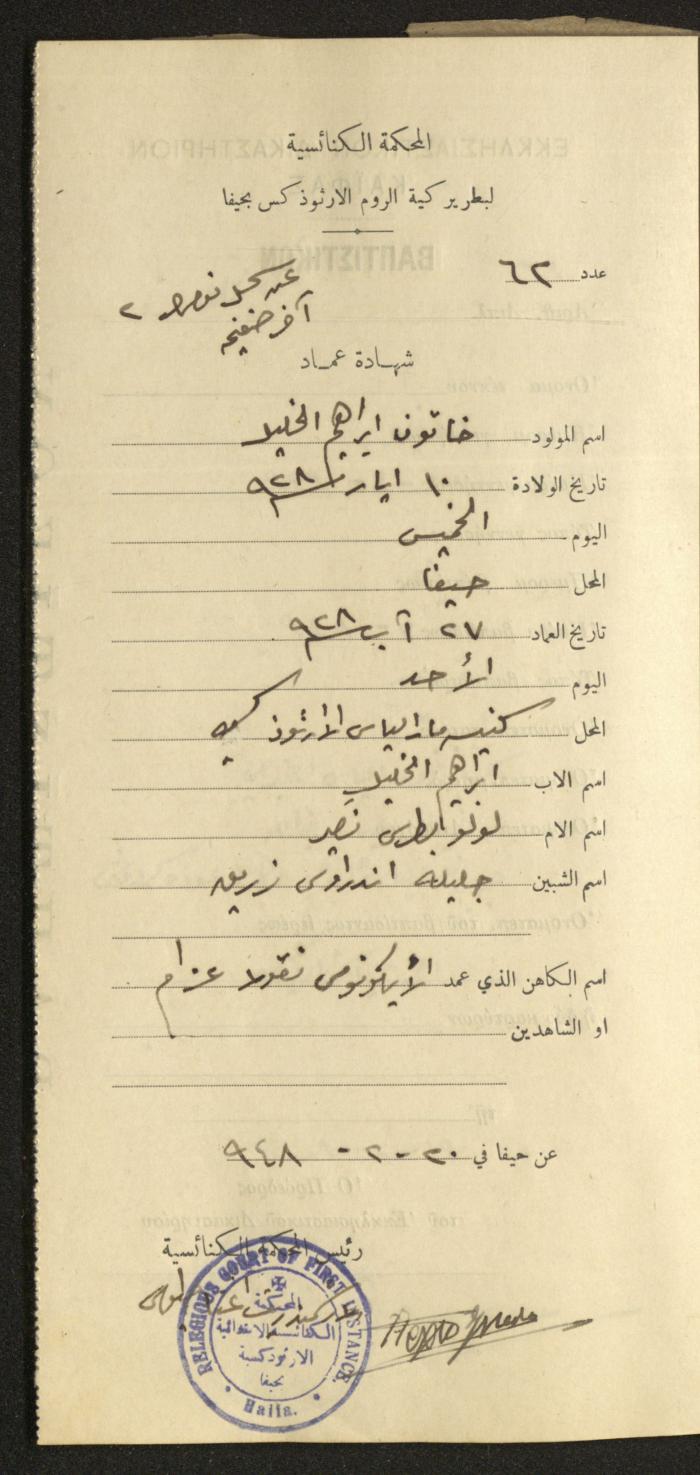 المحكمة الكنائسية
لبطريركية الروم الارثوذكس بحيفا
عدد ٦٢
عن سجل
آخر صفحة
شهادة عماد
اسم المولود خاتون ابراهيم الخليل
تاريخ الولادة ١٠ ايار سنة ٩٢٨
اليوم الخميس
المحل حيفا
تاريخ العماد ٢٧ آب سنة ٩٢٨
اليوم الأحد
المحل كنيسة مار الياس الأرثوذكسية
اسم الاب ابراهيم الخليل
اسم الام لولو بطرس نصير
اسم الشبين جليله اندراوس زريق
اسم الكاهن الذي عمد الأيكونومس نقولا عزام
او الشاهدين
عن حيفا في ٢٠ - ٢ - ٩٤٨
رئيس المحكمة الكنائسية
RELEGIOUS COURT OF FIRST INSTANCE.
المحكمة
الكنائسية الابتدائية
الارثوذكسية
بحيفا
Haifa.